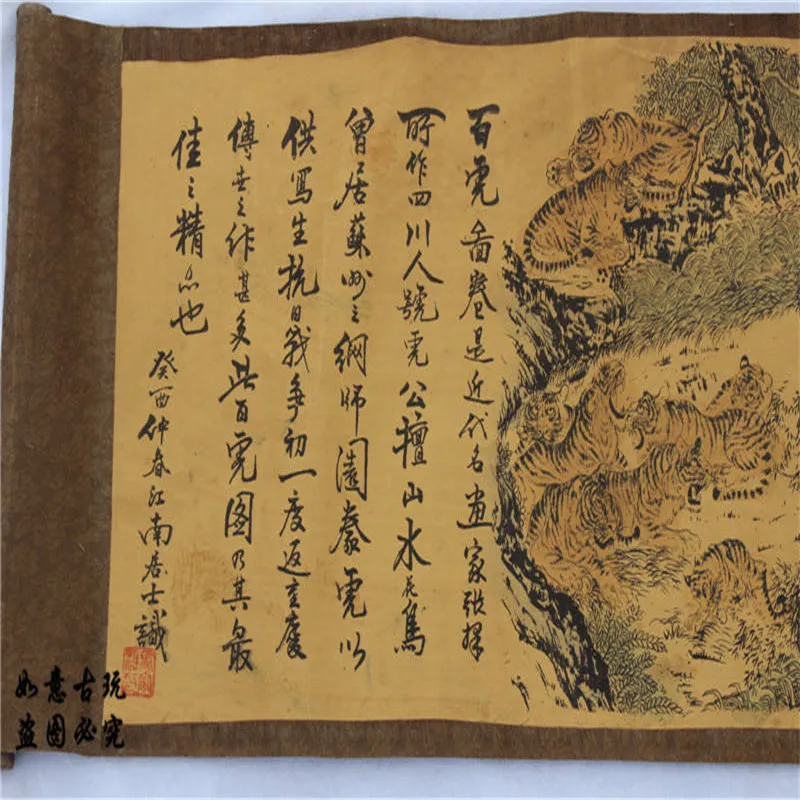 百虎图卷是近代名画家张择
所作四川人號虎公擅山水花鳥
曾居蘇州之網师園豢虎以
供写生抗日战争初一度返重慶
傳世之作甚多此百虎图乃其最
佳之精品也
癸酉仲春江南居士識
如意古玩
盗图必究